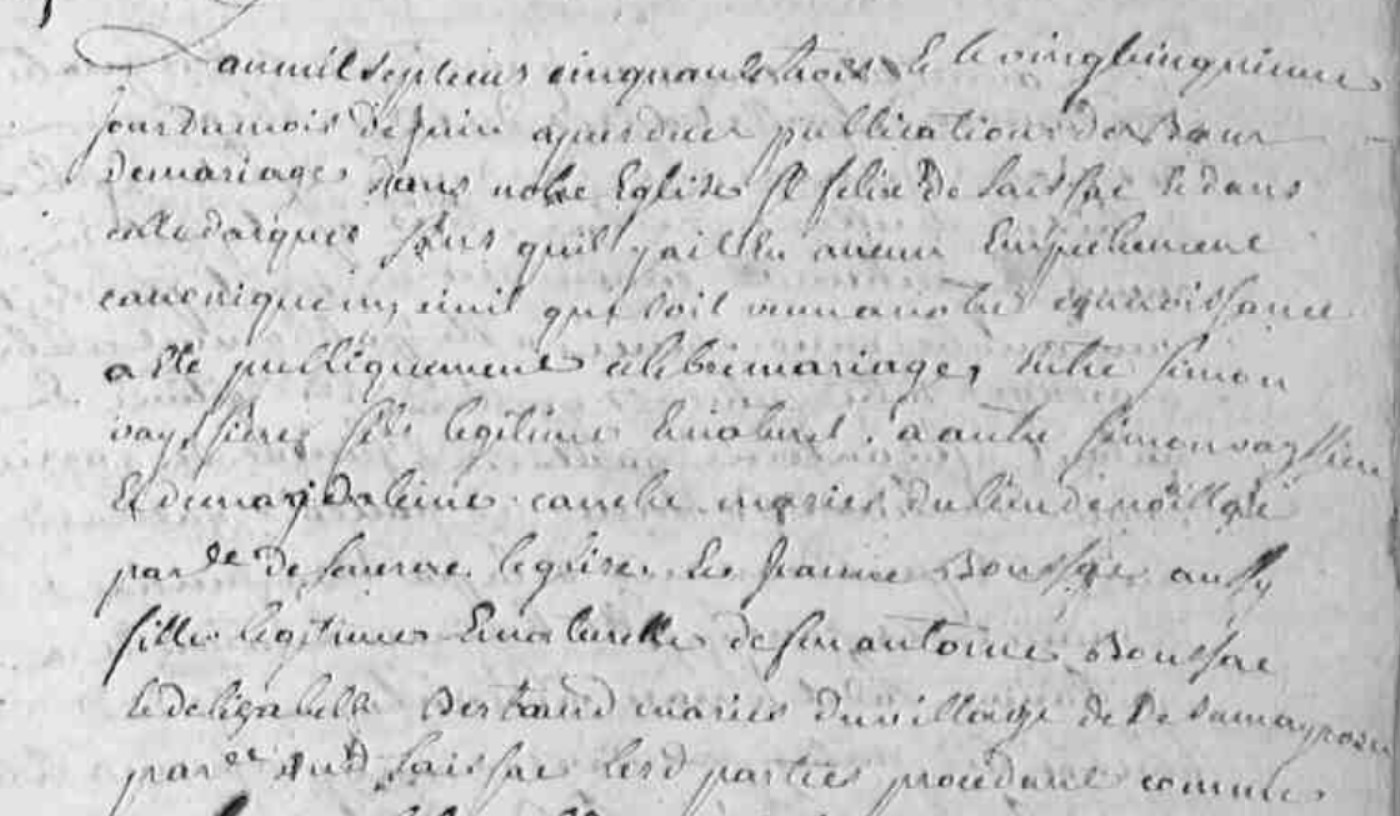 L'an mil sept cens cinquante trois et le vingt cinquieme
jour du mois de juin apres due publication des Bans
de mariage dans notre Eglise St felix de Laissac et dans
celle sans quil y ait Eu aucun Empechement
canonique ny civil qui soit venu a notre connoissance
a Ete publiquement celebré mariage, Entre simon
vayssiere fils legitime et naturel a autre simon vayssiere
Et de marie caucke mariés du lieu de
par.se de l'eglise. Et jeanne Boussac aussy
fille legitime Et naturelle de feu antoine Boussac
et delizabelle Bertrand mariés du village de
par.se dud Laissac lesd parties procedant comme